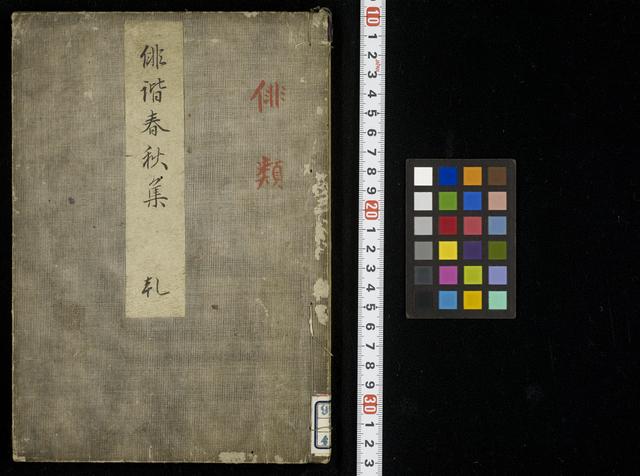 俳類
俳諧春秋集 乾
10
1
2
3
4
5
6
7
8
9
20
1
2
3
4
5
6
7
8
9
30
1
2
3